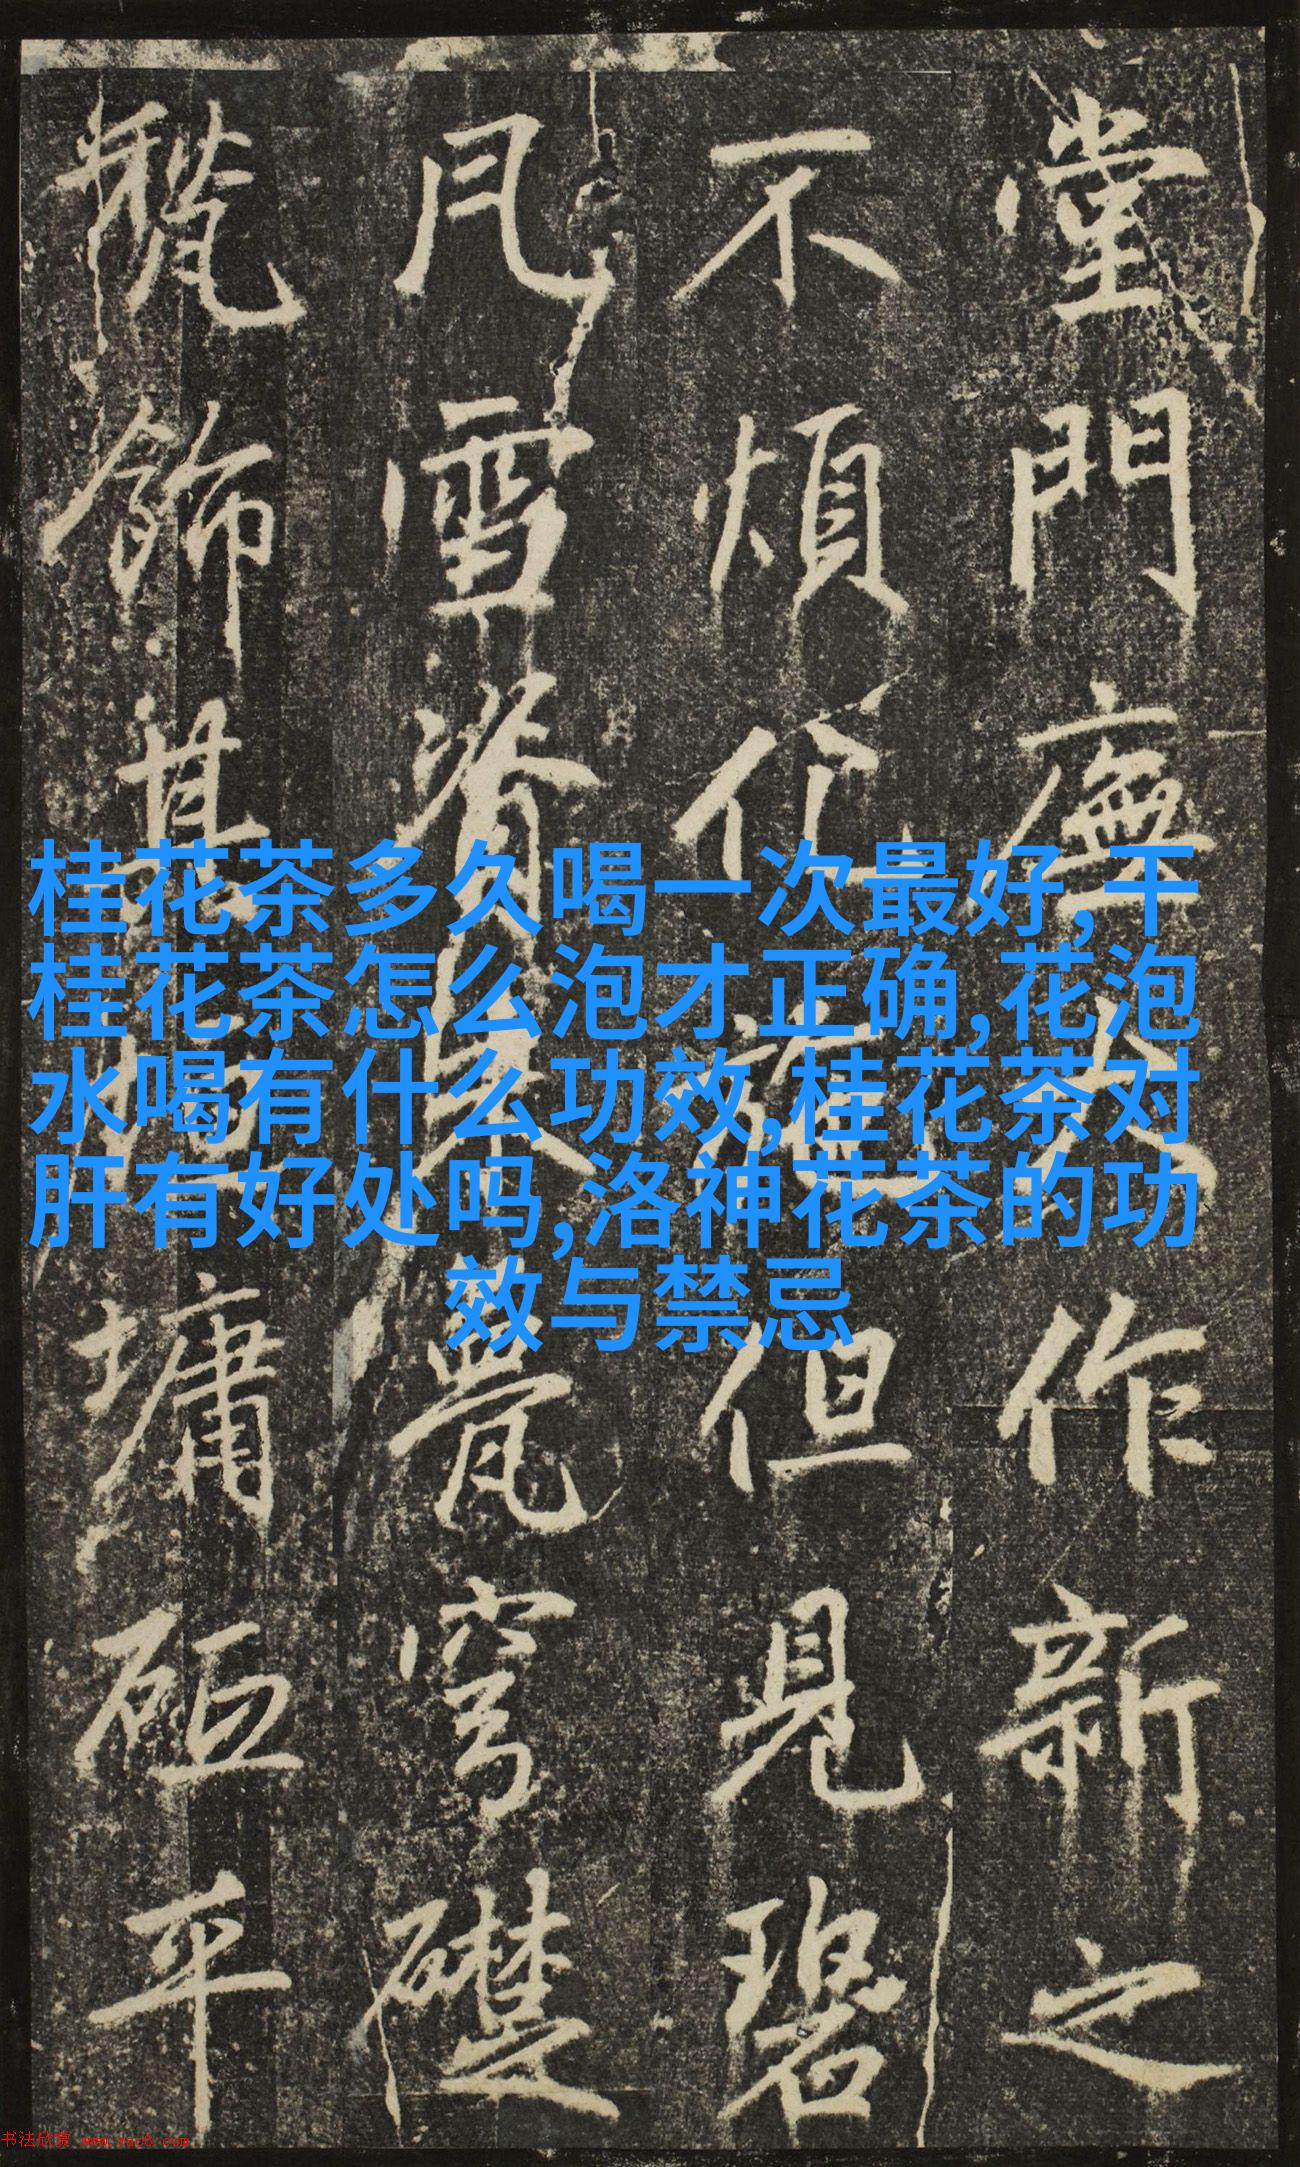 堂門廡作新之
不煩化但見碧
瓦雪脊甍穹礎
飾其墉砠平
桂花茶多久喝一次最好,干
桂花茶怎么泡才正确,花泡
水喝有什么功效,桂花茶对
肝有好处吗,洛神花茶的功
效与禁忌
书法欣赏 www.yac8.com